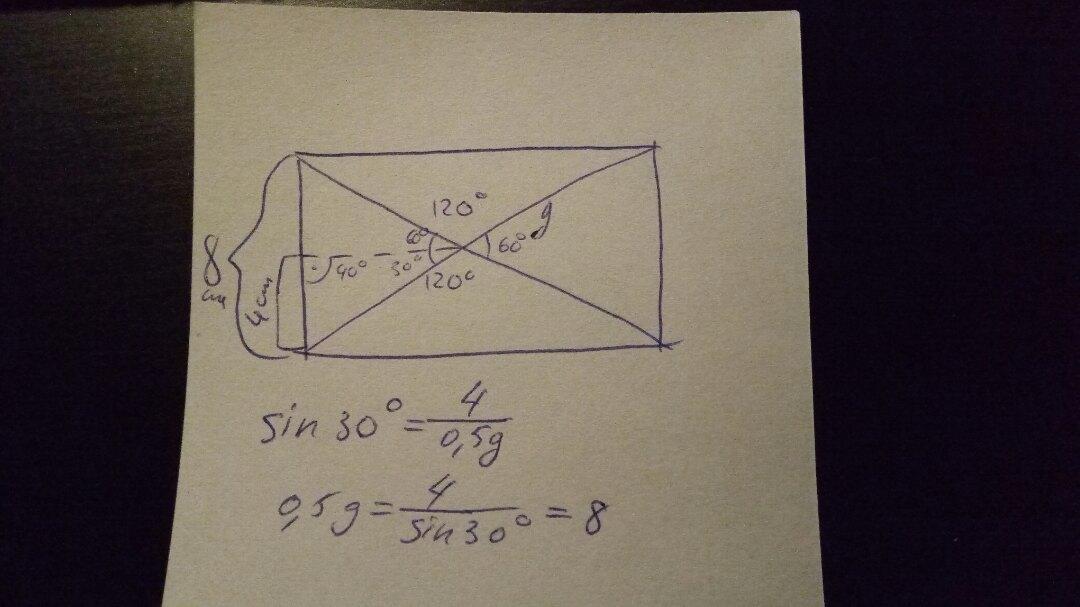 120°
g
60°
60°
8 cm
40°
30°
120°
4 cm
sin 30° = 4/0,5g
0,5g = 4/sin 30° = 8